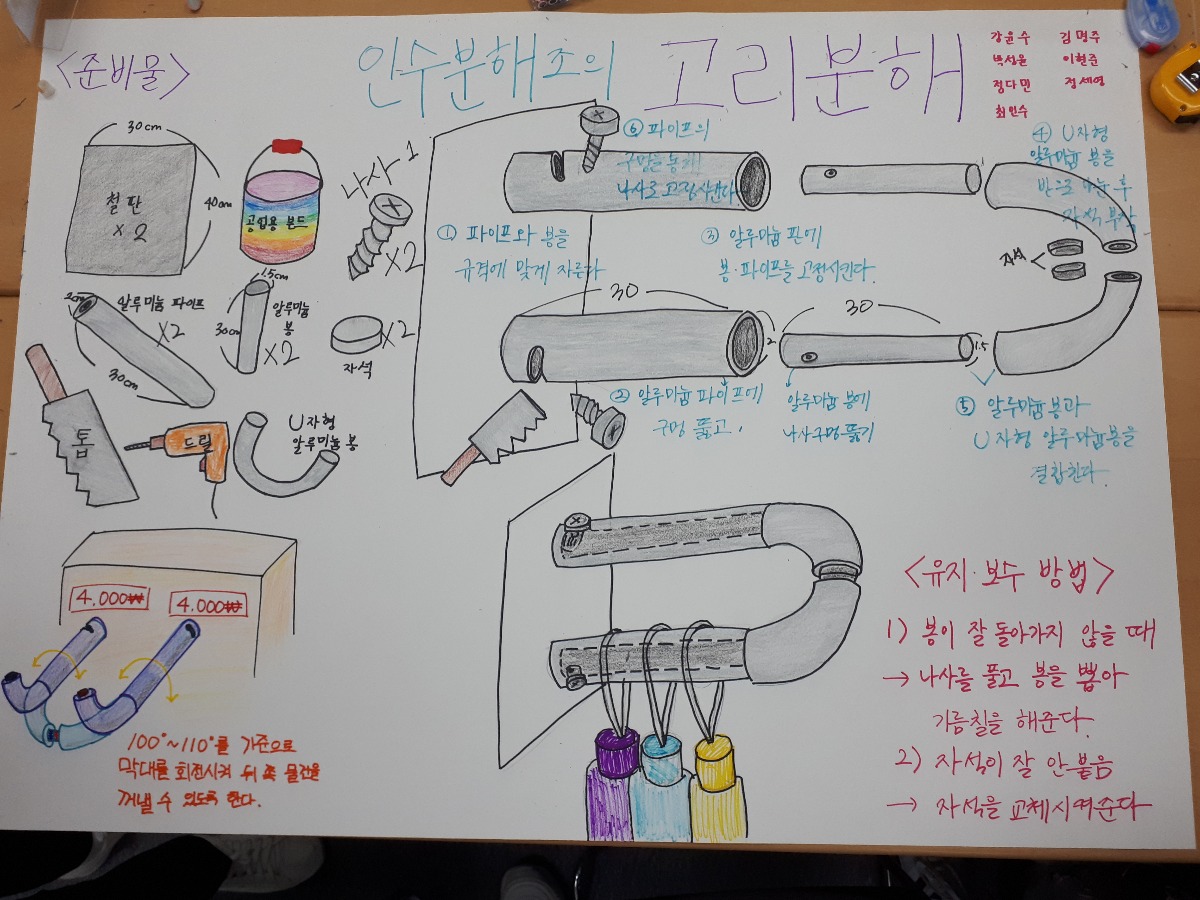 <준비물>
인수분해조의 고리분해
강윤수 김명주
박성윤 이현준
정다민 정세영
최인수
30cm
철판
x2
40cm
공업용 본드
나사 1
x2
2cm
알루미늄 파이프
x2
30cm
1.5cm
30cm
알루미늄
봉
x2
x2
자석
톱
드릴
U자형
알루미늄 봉
⑥ 파이프의
구멍을 통해
나사로 고정시킨다
④ U자형
알루미늄 봉을
반으로 나눈 후
자석 부착
자석
① 파이프와 봉을
규격에 맞게 자른다
③ 알루미늄 판에
봉·파이프를 고정시킨다.
30
2
30
1.5
② 알루미늄 파이프에
구멍 뚫고,
알루미늄 봉에
나사구멍 뚫기
⑤ 알루미늄봉과
U자형 알루미늄봉을
결합한다.
4.000₩
4.000₩
100°~110°를 기준으로
막대를 회전시켜 뒤 쪽 물건을
꺼낼 수 있도록 한다.
<유지·보수 방법>
1) 봉이 잘 돌아가지 않을 때
→ 나사를 풀고 봉을 뽑아
기름칠을 해준다.
2) 자석이 잘 안붙음
→ 자석을 교체시켜준다